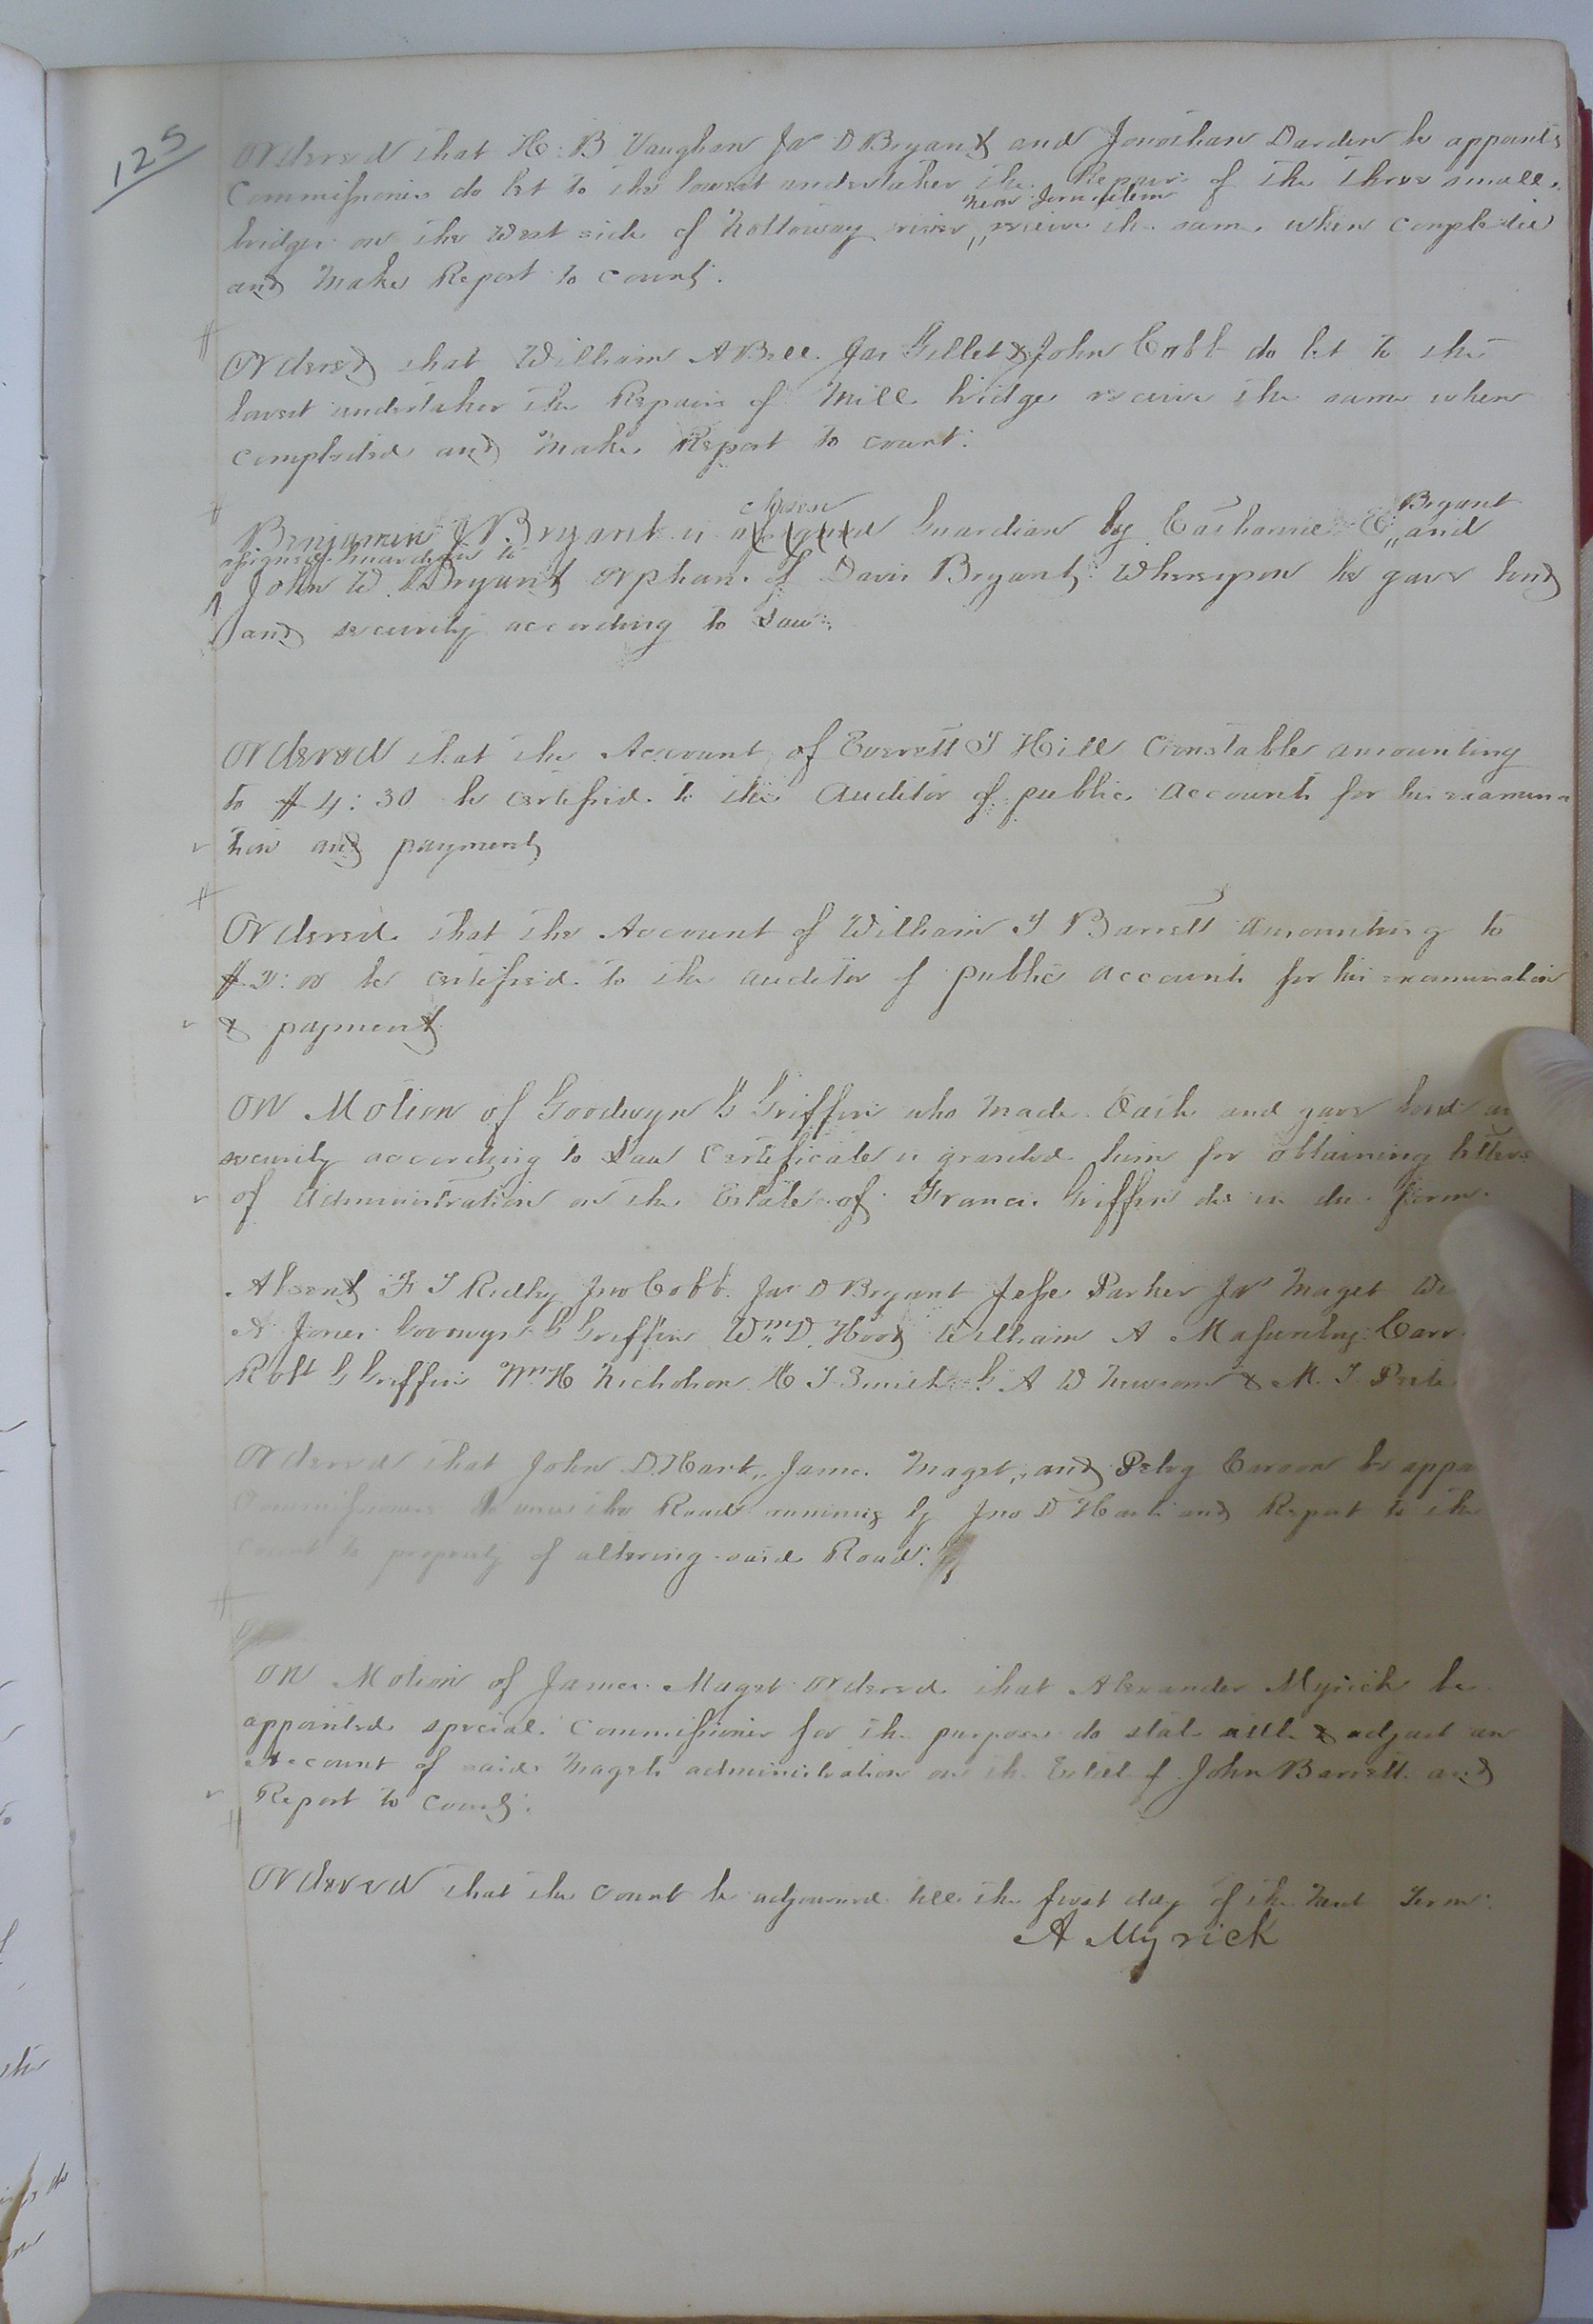 125
Ordered that H. B Vaughan Jas D Bryant and Jonathan Darden be appoints
Commissioners do let to the lowest undertaker the Repair of the three small
near Jerusalem
bridges on the West side of Nottoway river,, receive the same when completed
and Make Report to court.
Ordered that William A Bell Jas Gillet & John Cobb do let to the
lowest undertaker the Repairs of Mill bridge receive the same when
completed and Make Report to court.
chosen Bryant
Benjamin J Bryant is Guardian by Catharine E,, and
assigned Guardian to
John W. Bryant orphans of Davis Bryant Whereupon he gave bond
and security according to Law.
Ordered that the Account of Everett T Hill Constable amounting
to $4:30 be certified to the Auditor of public Accounts for his examina
tion and payment
Ordered that the Account of William T Barrett amounting to
be certified to the auditor of public accounts for his examination
& payment
ON Motion of Goodwyn G Griffin who Made Oath and gave bond
security according to Law Certificate is granted him for obtaining letters
of Administration on the Estate of Francis Griffin des in due form.
Absent F T Ridley Jno Cobb Jas D Bryant Jesse Parker Jas Maget
A Jones Goodwyn G Griffin Wm D. Hood William A Carr
Robt G Griffin Wm H Nicholson H T Smith G A W Newsom & M. T
Ordered that John D. Hart,, James Maget,, and Peleg Carson be appo
Commissioners to view the Road running by Jno D Harts and Report to the
Court to property of altering said Road.
ON Motion of James Maget Ordered that Alexander Myrick be
appointed special Commissioner for the purpose do state settle & adjust an
Account of said Magets administration on the Estate of John Barrett and
Report to Court.
Ordered that the Court be adjourned till the first day of the Next Term.
A Myrick